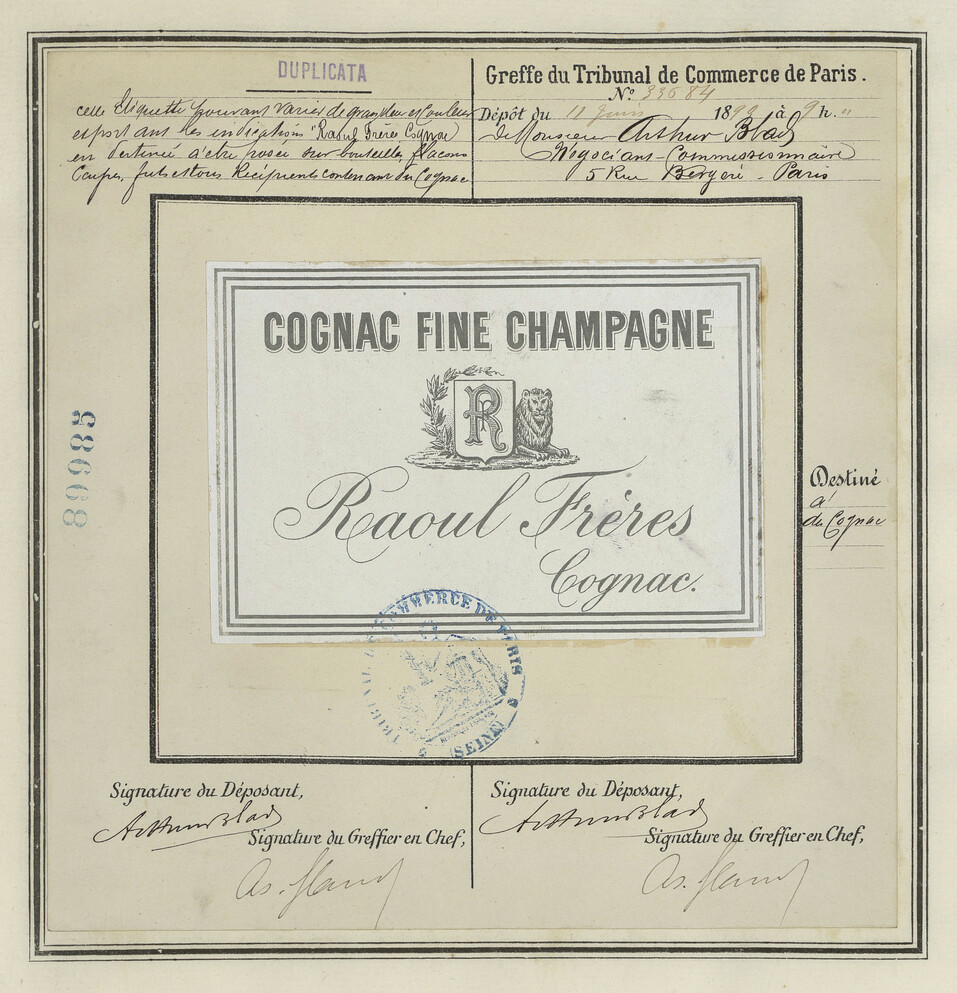 DUPLICATA
cette Etiquette pouvant varier de grandeur et Couleur
et portant les indications "Raoul Frères Cognac
est destinée à être posée sur bouteilles, flacons
Caisses, futs et tous Recipients contenant du Cognac
Greffe du Tribunal de Commerce de Paris.
N° 33684
Dépôt du 11 Juin 189 à 9 h. "
de Monsieur Arthur Blad
Négociant-Commissionnaire
5 Rue Bergère - Paris
COGNAC FINE CHAMPAGNE
R
Raoul Frères
Cognac.
89985
Destiné
à
du Cognac
TRIBUNAL DE COMMERCE DE PARIS
(SEINE)
Signature du Déposant,
Arthur Blad
Signature du Greffier en Chef,
Signature du Déposant,
Arthur Blad
Signature du Greffier en Chef,